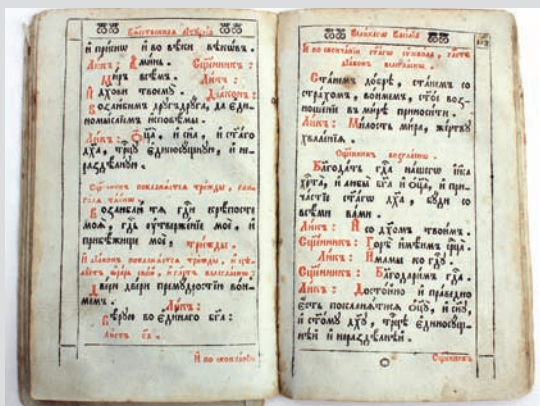 Бжественная літургіа
й присно й во вѣки вѣкѡвъ.
Ликъ: Аминь. Сщенникъ:
Миръ всѣмъ. Ликъ:
Й дхови твоемꙋ Діаконъ:
Возлюбимъ дрꙋгъ дрꙋга, да єди-
номысліемъ исповѣмы.
Ликъ: Оца, й сна, й стаго
дха, трцꙋ єдиносꙋщнꙋю, й не-
раздѣлнꙋю.
Сщенникъ покланяется трижды,
Возлюблю тя гди крѣпосте
моя, гдь ꙋтвержденіе моє, й
прибѣжище моє, трижды.
Й діаконъ покланяется трижды, й цѣ-
Двери двери премꙋдростію вон-
мемъ. Ликъ:
Вѣрꙋю во єдинаго бга:
Й по скончаніи
Великагѡ Василіа
Й по скончаніи стагѡ
діаконъ возглашаетъ.
Станемъ добрѣ, станемъ со
страхомъ, вонмемъ, стоє воз-
ношеніє въ мирѣ приносити.
Ликъ: Милость мира, жертвꙋ
хваленія.
Сщенникъ возгласно.
Благодать гда нашегѡ ійса
хрта, й любы бга й оца, й при-
частіє стагѡ дха, бꙋди со
всѣми вами.
Ликъ: Й со дхомъ твоимъ.
Сщенникъ: Горѣ имѣимъ срца.
Ликъ: Имамы ко гдꙋ.
Сщенникъ: Благодаримъ гда.
Ликъ: Достойно й праведно
єсть покланятися оцꙋ, й снꙋ,
й стомꙋ дхꙋ, трцѣ єдиносꙋщ-
нѣй й нераздѣлнѣй.
Сщенникъ